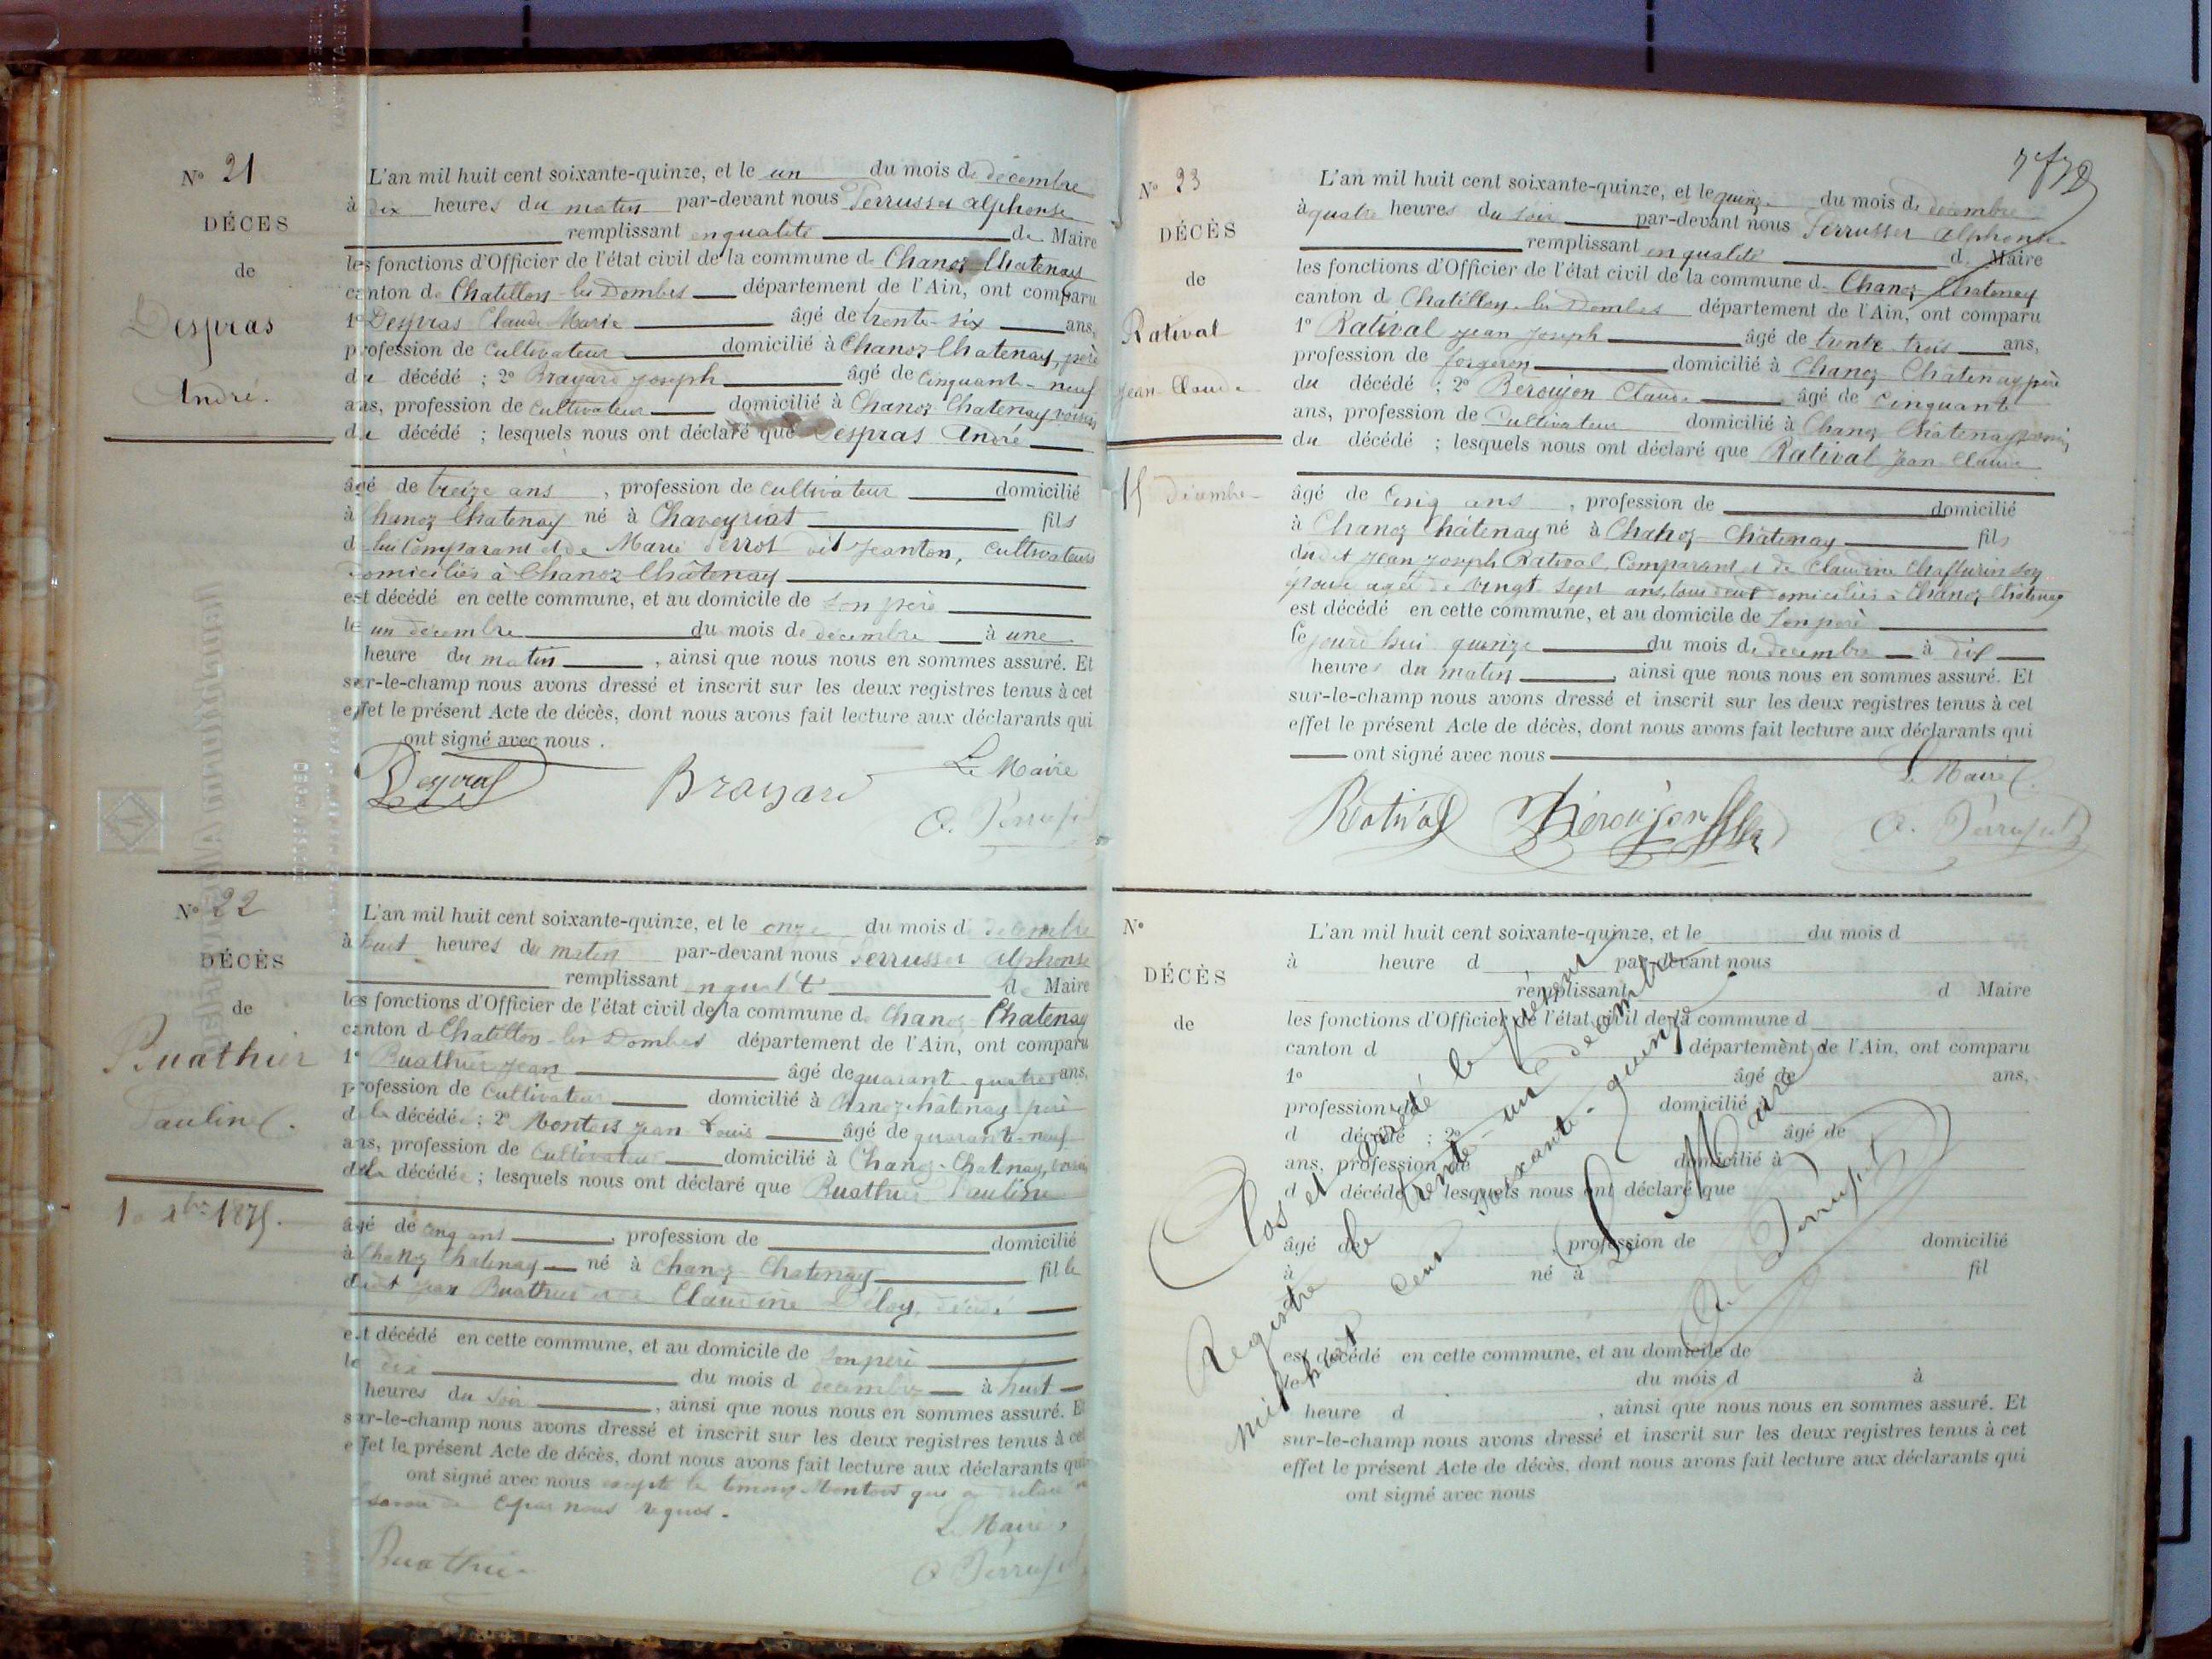 N° 21
DÉCÈS
de
Despras
André.
L'an mil huit cent soixante-quinze, et le un du mois de décembre
à dix heures du matin par-devant nous Perrusset alphonse
remplissant en qualité de Maire
les fonctions d'Officier de l'état civil de la commune de Chanoz-Chatenay
canton de Chatillon-les-Dombes département de l'Ain, ont comparu
1° Despras Claude Marie âgé de trente-six ans,
profession de cultivateur domicilié à Chanoz-Chatenay, père
du décédé ; 2° Brayard Joseph âgé de cinquante-neuf
ans, profession de cultivateur domicilié à Chanoz-Chatenay voisin
du décédé ; lesquels nous ont déclaré que Despras André
âgé de treize ans, profession de cultivateur domicilié
à Chanoz-Chatenay né à Chaveyriat fils
de lui Comparant et de Marie Perrot dit Jeanton, cultivateurs
domiciliés à Chanoz-Châtenay
est décédé en cette commune, et au domicile de son père
le un décembre du mois de décembre à une
heure du matin, ainsi que nous nous en sommes assuré. Et
sur-le-champ nous avons dressé et inscrit sur les deux registres tenus à cet
effet le présent Acte de décès, dont nous avons fait lecture aux déclarants qui
ont signé avec nous.
Le Maire
Despras Brayard
A. Perrusset
N° 22
DÉCÈS
de
Buathier
Pauline.
10 Xbre 1875.
L'an mil huit cent soixante-quinze, et le onze du mois de décembre
à huit heures du matin par-devant nous Perrusset alphonse
remplissant en qualité de Maire
les fonctions d'Officier de l'état civil de la commune de Chanoz-Chatenay
canton de Chatillon-les-Dombes département de l'Ain, ont comparu
1° Buathier Jean âgé de quarante-quatre ans,
profession de Cultivateur domicilié à Chanoz-Châtenay père
de la décédée ; 2° Montois Jean-Louis âgé de quarante-neuf
ans, profession de Cultivateur domicilié à Chanoz-Chatenay, voisin
de la décédée ; lesquels nous ont déclaré que Buathier Pauline
âgé de cinq ans, profession de domicilié
à Chanoz Chatenay né à Chanoz-Chatenay fille
dudit Jean Buathier et de Claudine Déloy, décédé
est décédé en cette commune, et au domicile de son père
le dix du mois d décembre à huit
heures du soir, ainsi que nous nous en sommes assuré. Et
sur-le-champ nous avons dressé et inscrit sur les deux registres tenus à cet
effet le présent Acte de décès, dont nous avons fait lecture aux déclarants qui
ont signé avec nous excepté le témoin Montois qui a déclaré ne
savoir de ce par nous requis.
Le Maire,
Buathier
A. Perrusset
N° 23
DÉCÈS
de
Ratival
Jean-Claude
15 décembre
L'an mil huit cent soixante-quinze, et le quinze du mois de décembre
à quatre heures du soir par-devant nous Perrusset Alphonse
remplissant en qualité d. Maire
les fonctions d'Officier de l'état civil de la commune d. Chanoz-Chatenay
canton d. Chatillon-les-Dombes département de l'Ain, ont comparu
1° Ratival Jean Joseph âgé de trente-trois ans,
profession de forgeron domicilié à Chanoz-Châtenay père
du décédé ; 2° Beroujon Claude âgé de Cinquante
ans, profession de Cultivateur domicilié à Chanoz Châtenay voisin
du décédé ; lesquels nous ont déclaré que Ratival Jean Claude
âgé de Cinq ans, profession de domicilié
à Chanoz Châtenay né à Chanoz-Châtenay fils
dudit Jean Joseph Ratival, Comparant et de Claudine Chaffurin son
épouse agée de vingt-sept ans, tous deux domiciliés à Chanoz Châtenay
est décédé en cette commune, et au domicile de son père
le jourd'hui quinze du mois de décembre à dix
heures du matin, ainsi que nous nous en sommes assuré. Et
sur-le-champ nous avons dressé et inscrit sur les deux registres tenus à cet
effet le présent Acte de décès, dont nous avons fait lecture aux déclarants qui
ont signé avec nous
Le Maire
Ratival Béroujon A. Perrusset
N°
DÉCÈS
de
L'an mil huit cent soixante-quinze, et le du mois d
à heure d par-devant nous
remplissant d Maire
les fonctions d'Officier de l'état civil de la commune d
canton d département de l'Ain, ont comparu
1° âgé de ans,
profession de domicilié à
d décédé ; 2° âgé de
ans, profession de domicilié à
d décédé ; lesquels nous ont déclaré que
âgé de , profession de domicilié
à né à fil
est décédé en cette commune, et au domicile de
le du mois d à
heure d , ainsi que nous nous en sommes assuré. Et
sur-le-champ nous avons dressé et inscrit sur les deux registres tenus à cet
effet le présent Acte de décès, dont nous avons fait lecture aux déclarants qui
ont signé avec nous
Clos et arrêté le présent
Registre le trente-un décembre
mil huit cent soixante-quinze.
Le Maire
A. Perrusset